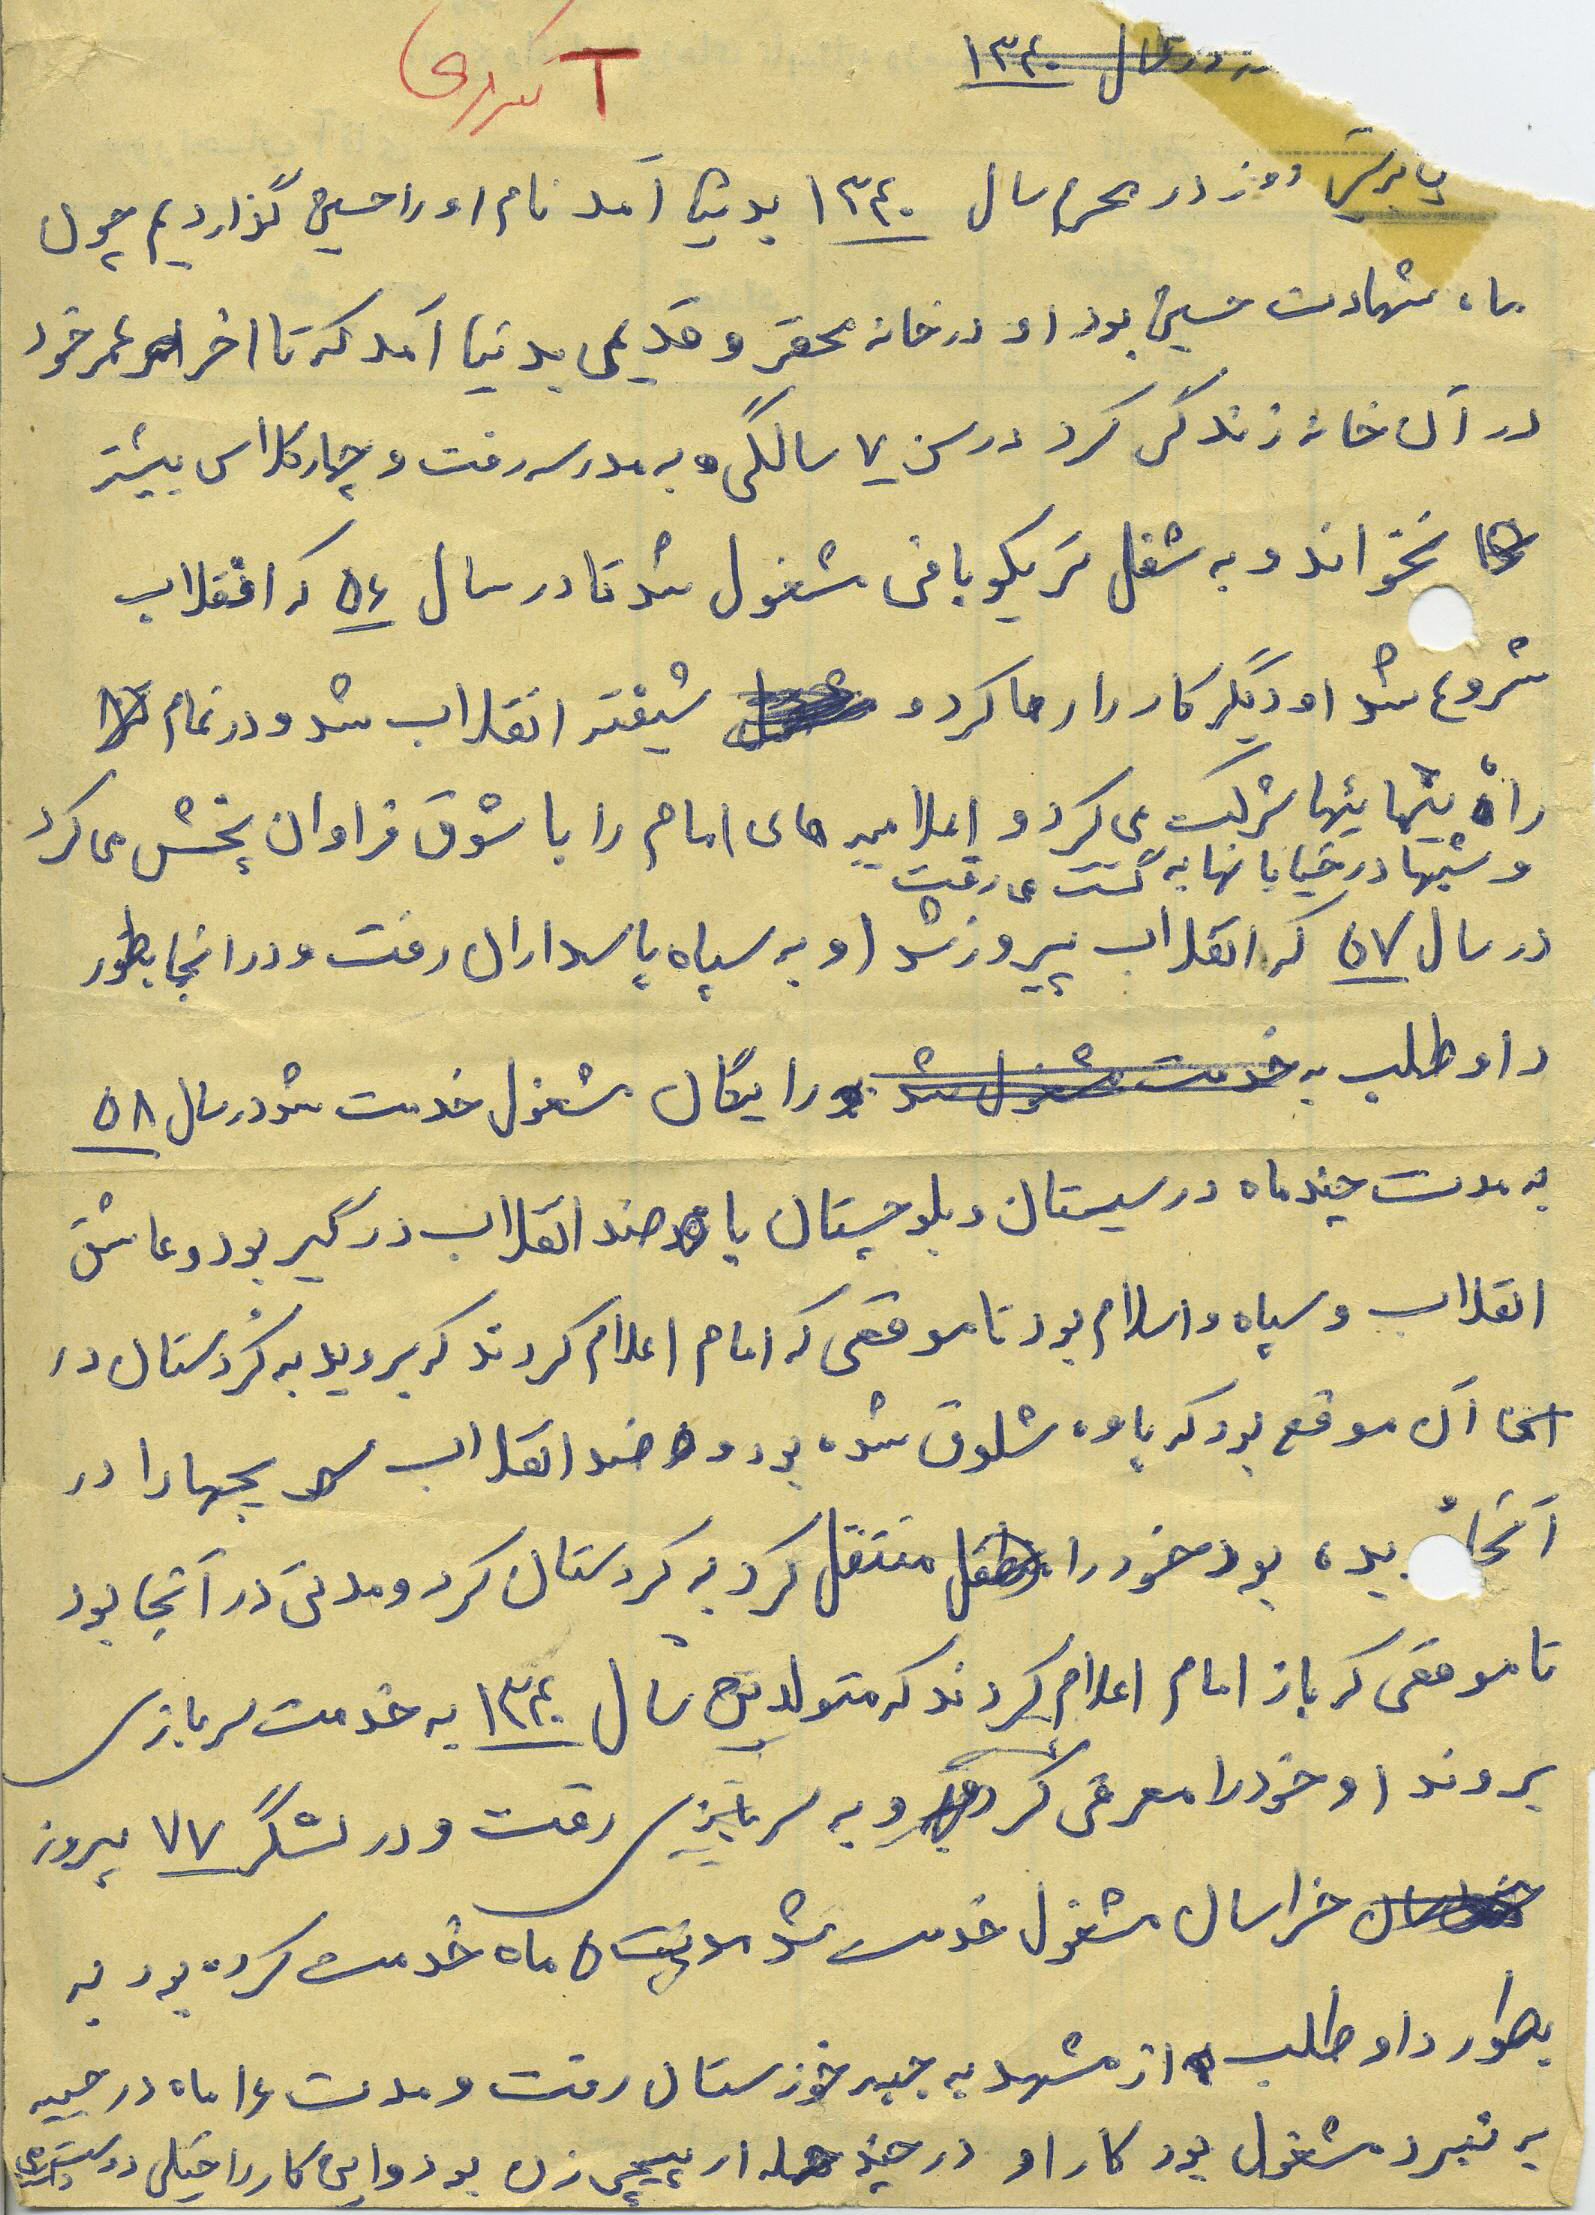 در سال ۱۳۴۰
روز در محرم سال ۱۳۴۰ بدنیا آمد نام او را حسین گذاردیم چون
ماه شهادت حسین بود او در خانه محقر و قدیمی بدنیا آمد که تا اخر عمر خود
در آن خانه زندگی کرد در سن ۷ سالگی به مدرسه رفت و چهار کلاس بیشتر
نخواند و به شغل تریکو بافی مشغول شد تا در سال ۵۶ که انقلاب
شروع شد او دیگر کار را رها کرد و شیفته انقلاب شد و در تمام
راه پیمایئها شرکت می کرد و اعلامیه های امام را با شوق فراوان پخش می کرد
و شبها در خیابانها به گشت می رفت
در سال ۵۷ که انقلاب پیروز شد او به سپاه پاسداران رفت و در انجا بطور
داوطلب به خدمت مشغول شد و رایگان مشغول خدمت شد در سال ۵۸
به مدت چند ماه در سیستان و بلوچستان با ضد انقلاب درگیر بود و عاشق
انقلاب و سپاه و اسلام بود تا موقعی که امام اعلام کردند که بروید به کردستان در
آن موقع بود که پاوه شلوق شده بود و ضد انقلاب بچها را در
آنجا بود خود را منتقل کرد به کردستان کرد و مدتی در آنجا بود
تا موقعی که باز امام اعلام کردند که متولدین سال ۱۳۴۰ به خدمت سربازی
بروند او خود را معرفی کرد و به سربازی رفت و در لشگر ۷۷ پیروز
خراسان مشغول خدمت شد مدت ۵ ماه خدمت کرده بود به
بطور داوطلب از مشهد به جبهه خوزستان رفت و مدت ۱۶ ماه در جبهه
به نبرد مشغول بود کار او در چند حمله ار پیچی زن بود و این کار را خیلی دوست داشت